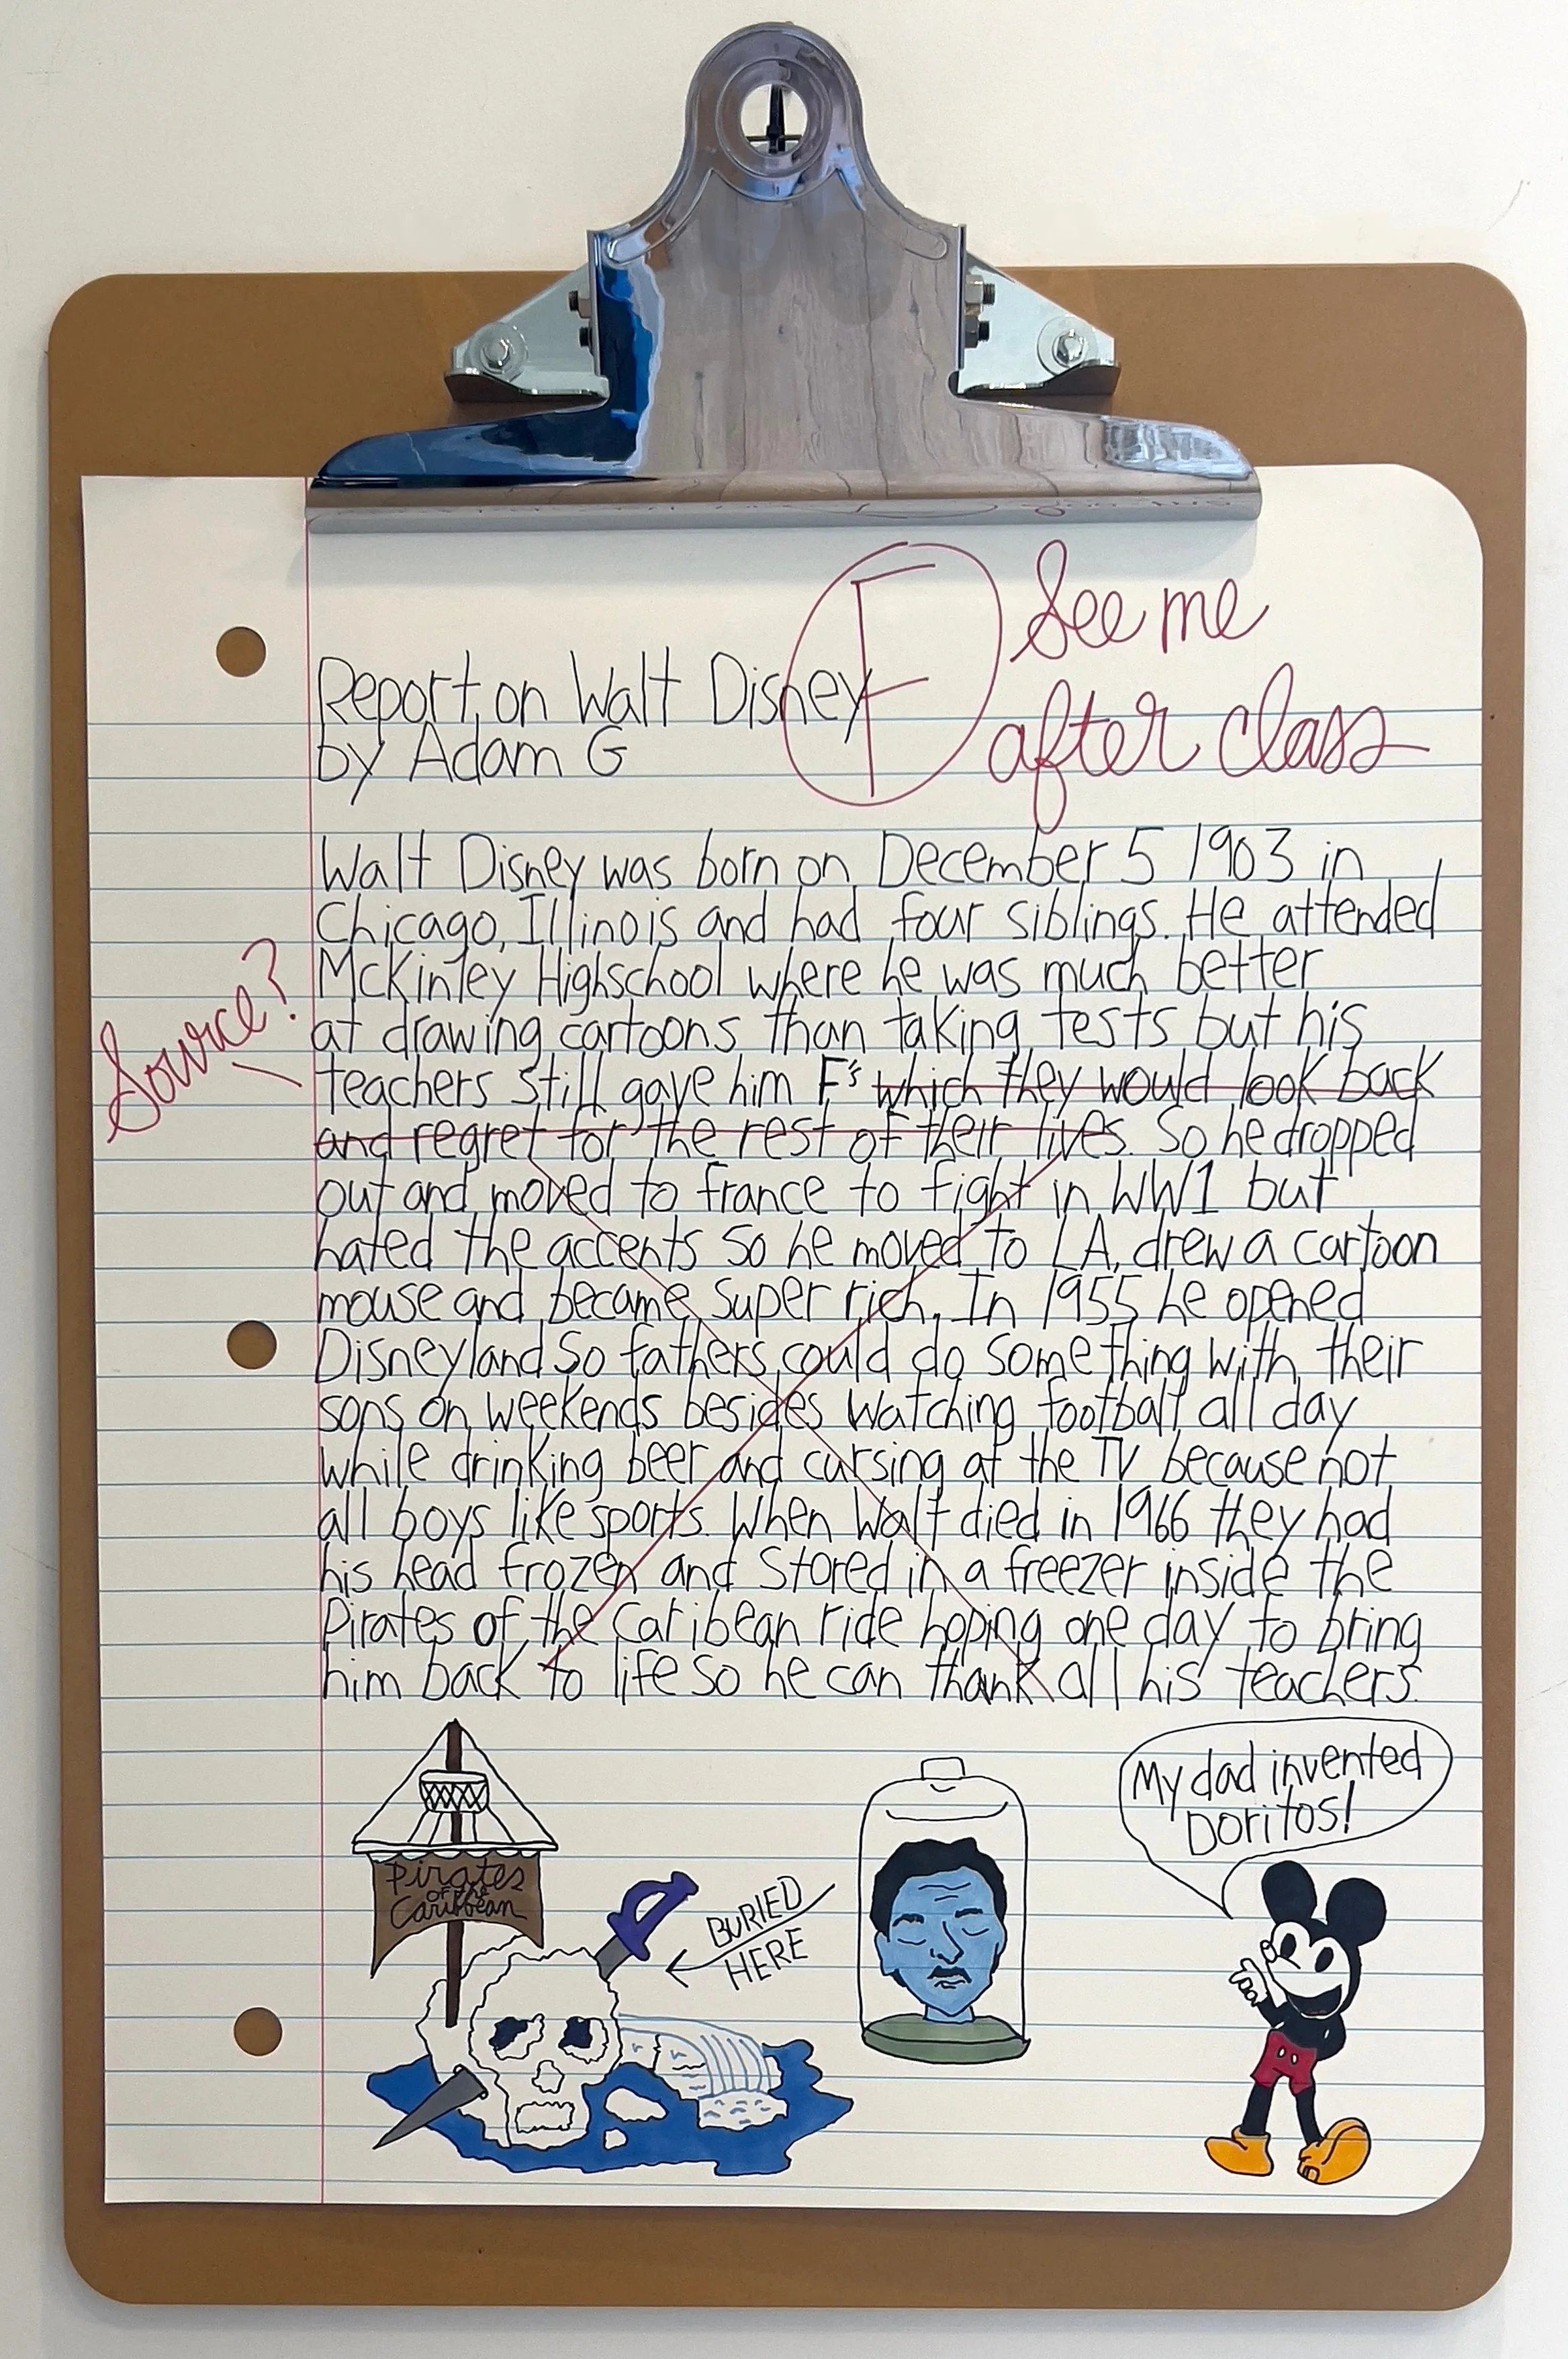 F See me
after class
Report on Walt Disney
by Adam G
Walt Disney was born on December 5 1903 in
Chicago, Illinois and had four siblings. He attended
McKinley Highschool where he was much better
at drawing cartoons than taking tests but his
Source?
teachers still gave him F's which they would look back
and regret for the rest of their lives. So he dropped
out and moved to france to fight in WW1 but
hated the accents so he moved to LA, drew a cartoon
mouse and became super rich. In 1955 he opened
Disneyland so fathers could do something with their
sons on weekends besides watching football all day
while drinking beer and cursing at the TV because not
all boys like sports. When Walt died in 1966 they had
his head frozen and stored in a freezer inside the
Pirates of the Caribean ride hoping one day to bring
him back to life so he can thank all his teachers.
My dad invented
Doritos!
Pirates
of the
Caribbean
BURIED
HERE